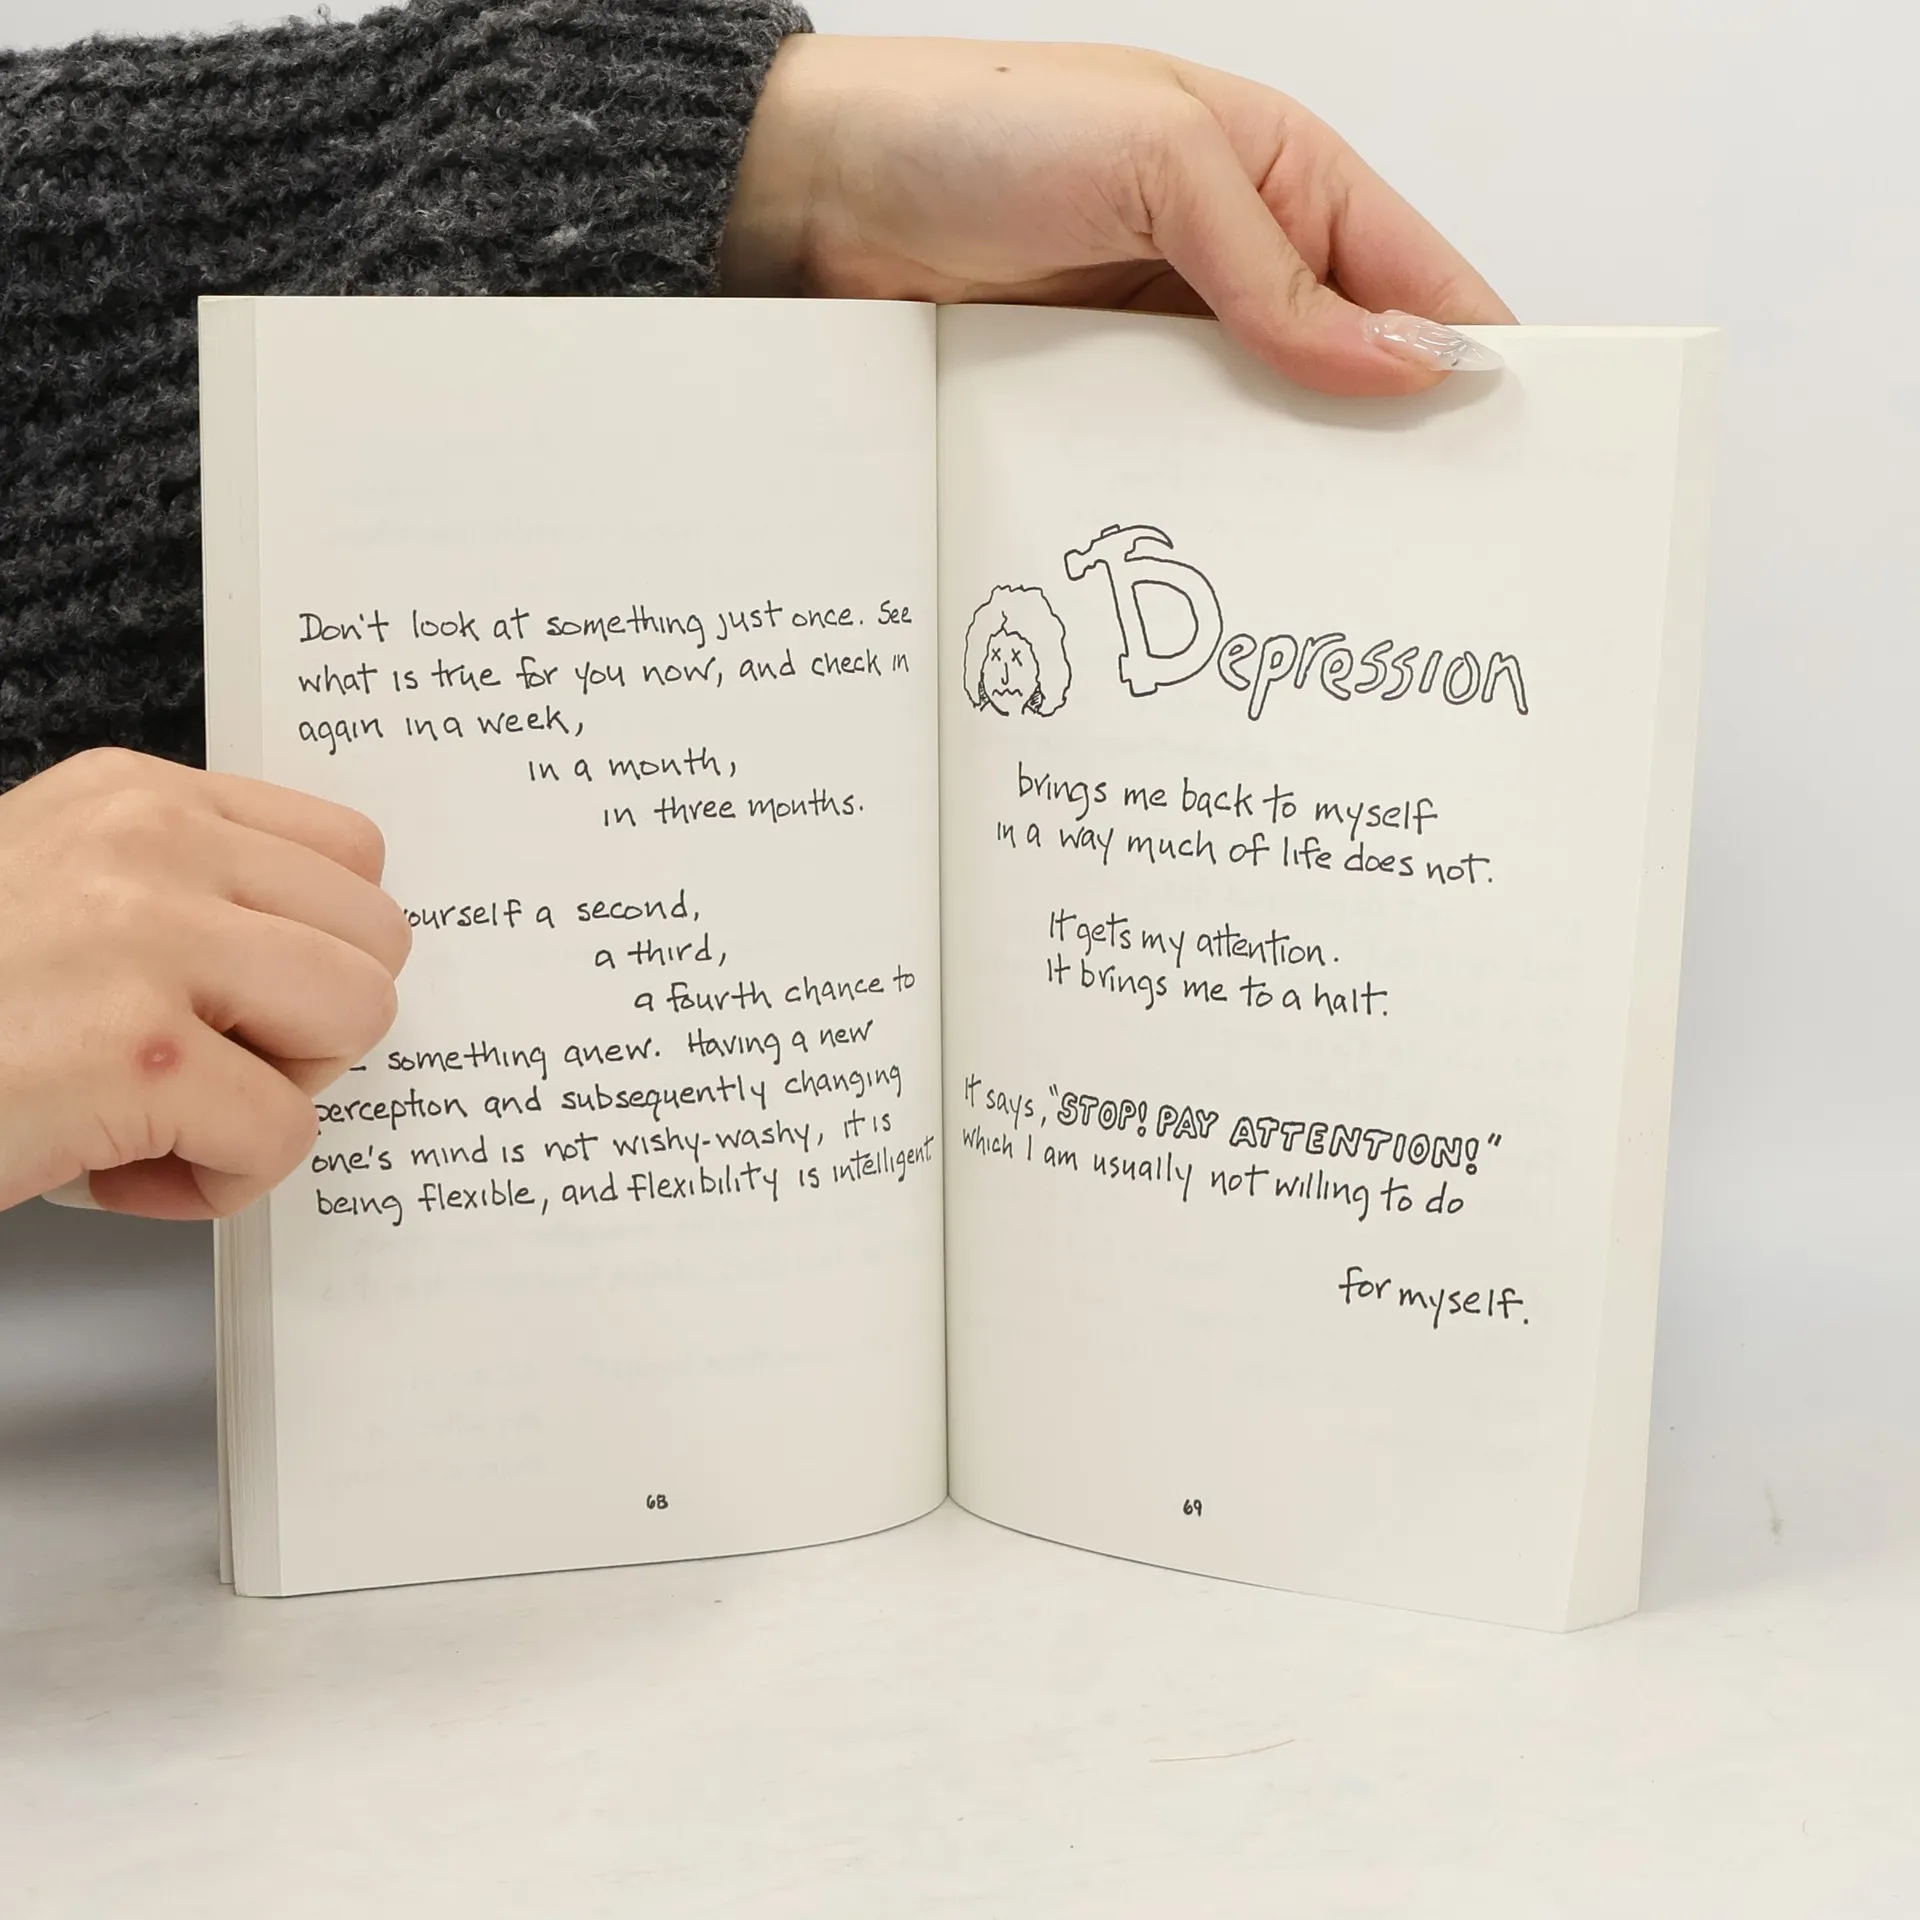 Don't look at something just once. See
what is true for you now, and check in
again in a week,
in a month,
in three months.
yourself a second,
a third,
a fourth chance to
something anew. Having a new
perception and subsequently changing
one's mind is not wishy-washy, it is
being flexible, and flexibility is intelligent
68
Depression
brings me back to myself
in a way much of life does not.
It gets my attention.
It brings me to a halt.
It says, "STOP! PAY ATTENTION!"
which I am usually not willing to do
for myself.
69